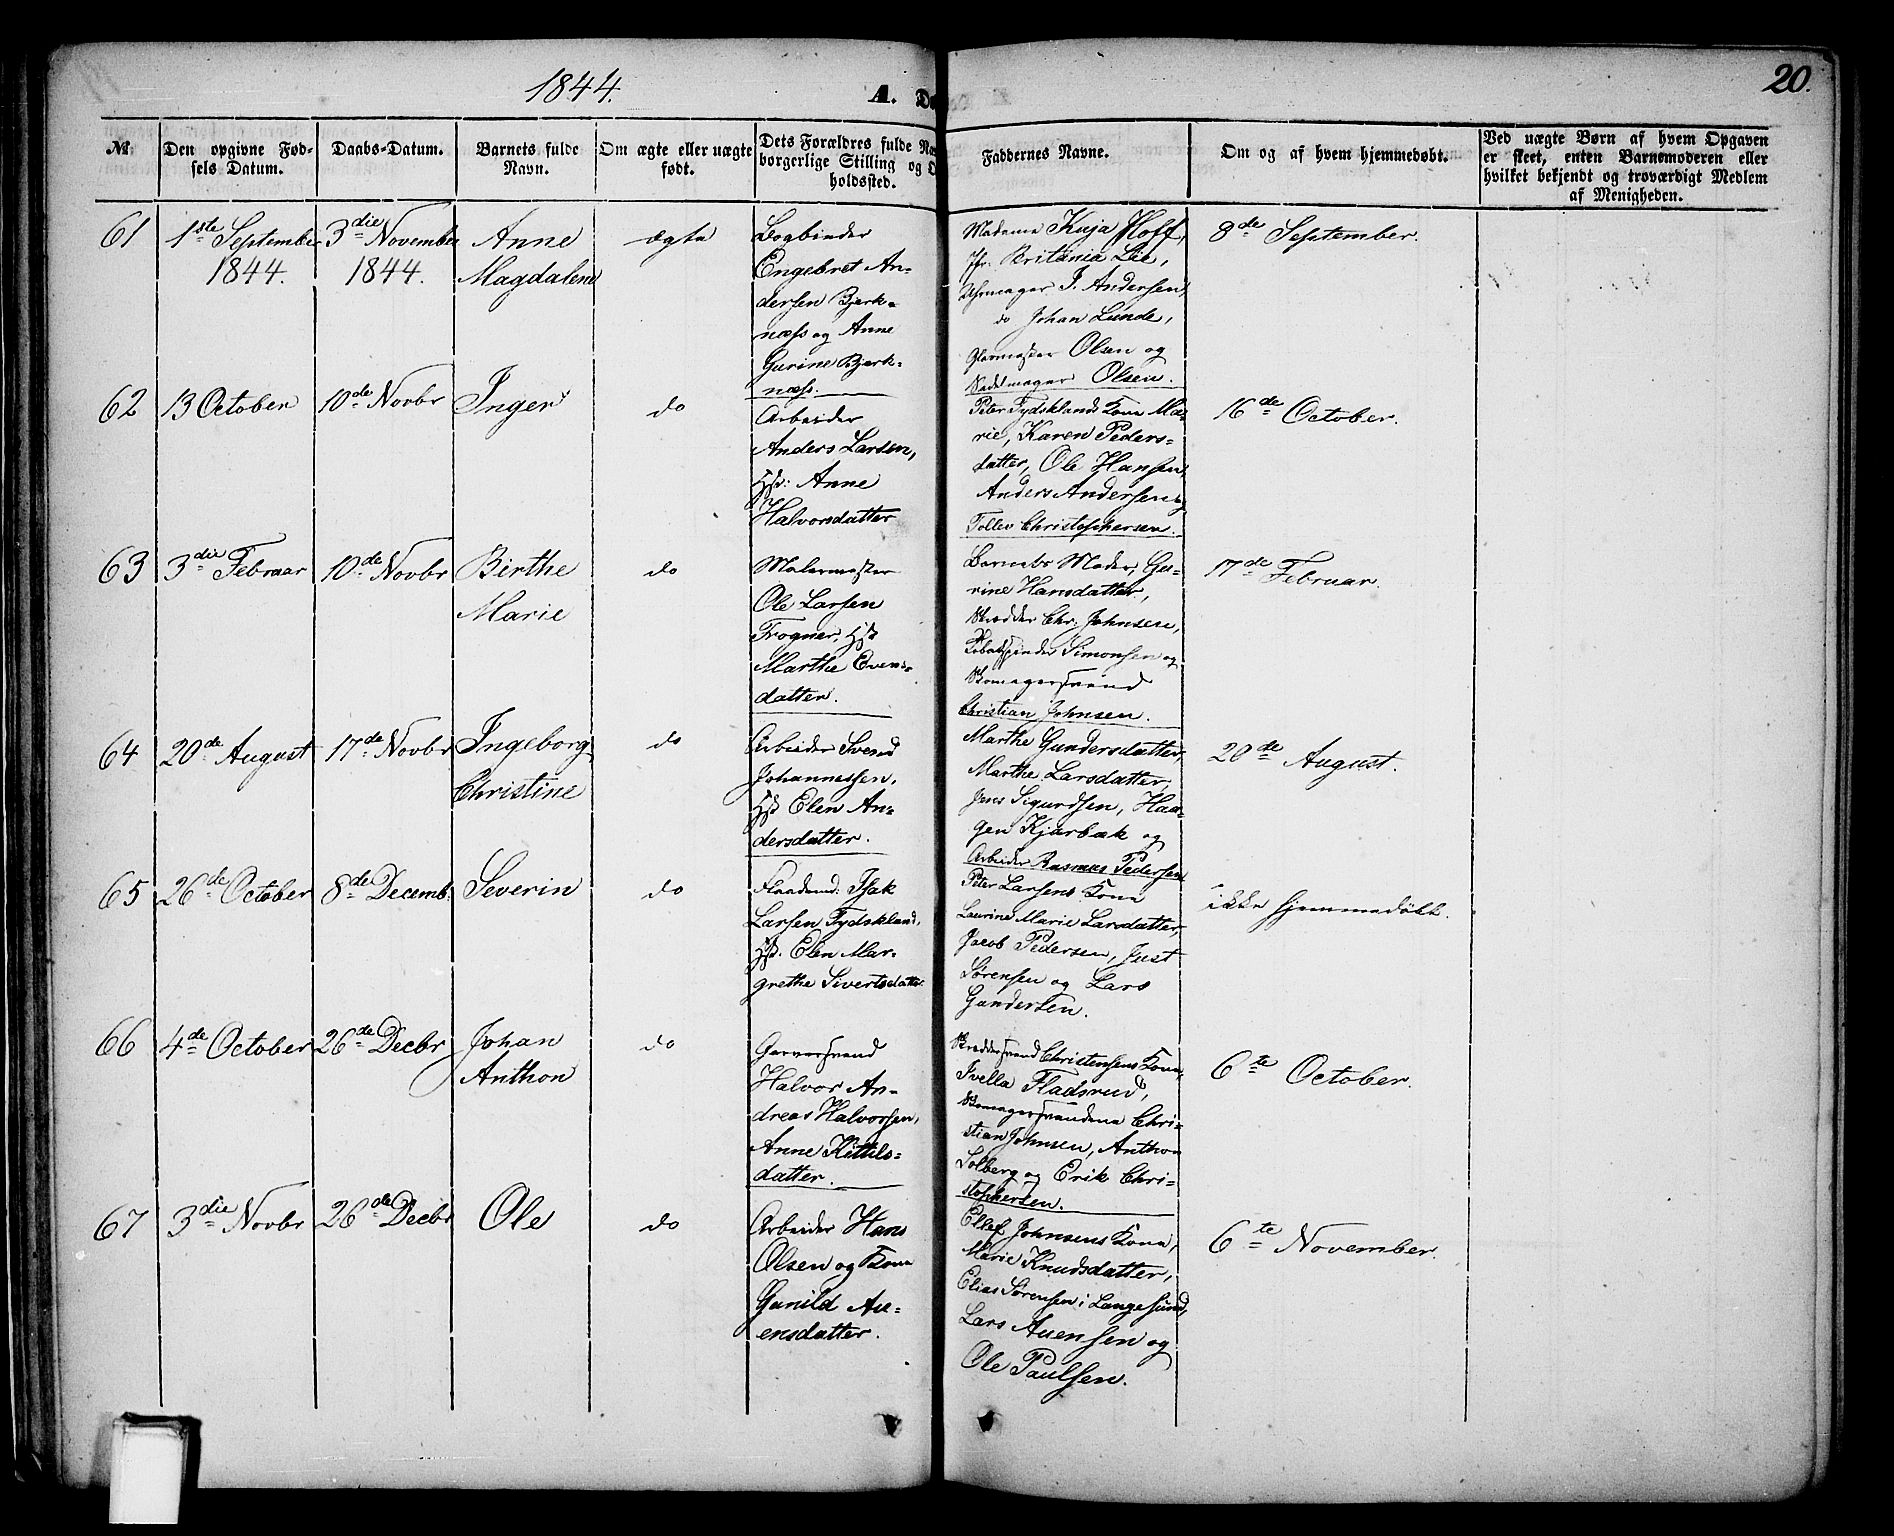 1844.
A.
20.
№
Den opgivne Fød-
sels Datum.
Daabs-Datum.
Barnets fulde
Navn.
Om ægte eller uægte
født.
Dets Forældres fulde
borgerlige Stilling og
holdssted.
Faddernes Navne.
Om og af hvem hjemmedøbt.
Ved uægte Børn af hvem Opgaven
er skeet, enten Barnemoderen eller
hvilket bekjendt og troværdigt Medlem
af Menigheden.
61
1ste September
1844.
3die November
1844.
Anne
Magdalene
ægte
Bogbinder
Engebret An-
dersen Bjerk-
næss og Anne
Gurine Bjerk-
næss.
Madame Kaja Hoff,
Jfr. Britania Lie,
Uhrmager J. Andersen,
do Johan Lunde,
Glarmester Olsen og
Sadelmager Olsen.
8de September.
62
13 October
10de Novbr
Inger
do
Arbeider
Anders Larsen,
Hst: Anne
Halvorsdatter
Peter Tydsklands Kone Ma-
rie, Karen Peders-
datter, Ole Hansen,
Anders Andersen og
Tollev Christophersen.
16de October.
63
3die Februar
10de Novbr
Birthe
Marie
do
Malermester
Ole Larsen
Trogner, Hst
Marthe Evens-
datter.
Barnets Moder, Gu-
rine Hansdatter,
Skrædder Chr. Johnsen,
Tobakspinder Simonsen og
Skomagersvend
Christian Johnsen.
17de Februar.
64
20de August
17de Novbr
Ingeborg
Christine
do
Arbeider Svend
Johannessen,
Hst Elen An-
dersdatter.
Marthe Gundersdatter,
Marthe Larsdatter,
Jens Sigurdsen, Haa-
gen Kjærbæk og
Arbeider Rasmus Pedersen
20de August.
65
26de October
8de Decemb.
Severin
do
Isak
Larsen Tydskland,
Hst. Elen Mar-
grethe Sivertsdatter
Peter Larsens Kone
Laurine Marie Larsdatter,
Jacob Pedersen, Just
Sørensen og Lars
Gundersen.
ikke hjemmedøbt.
66
4de October
26de Decbr
Johan
Anthon
do
Garversvend
Halvor An-
dreas Halvorsen,
Anne Kittils-
datter.
Skræddersvend Christensens Kone,
Ivella Fladsrud,
Skomagersvendene Chri-
stian Johnsen, Anthon
Solberg og Erik Chri-
stophersen.
6te October.
67
3die Novbr
26de Decbr
Ole
do
Arbeider Hans
Olsen og Kone
Gunild Au-
ensdatter.
Ellef Johnsens Kone,
Marie Knudsdatter,
Elias Sørensen i Langesund,
Lars Auensen og
Ole Paulsen.
6te November.